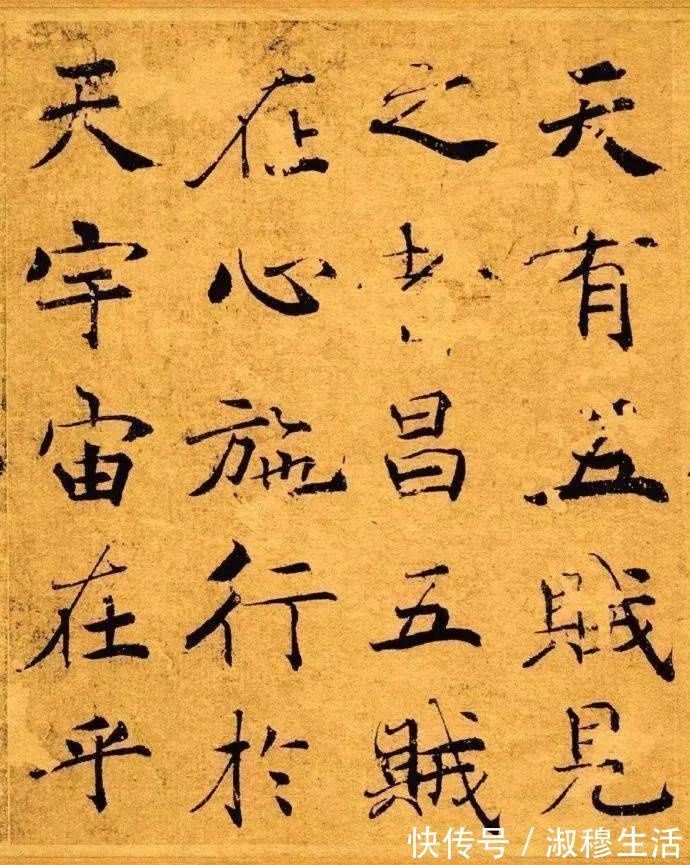 天有五賊見
之者昌五賊
在心施行於
天宇宙在乎
快传号 / 淑穆生活